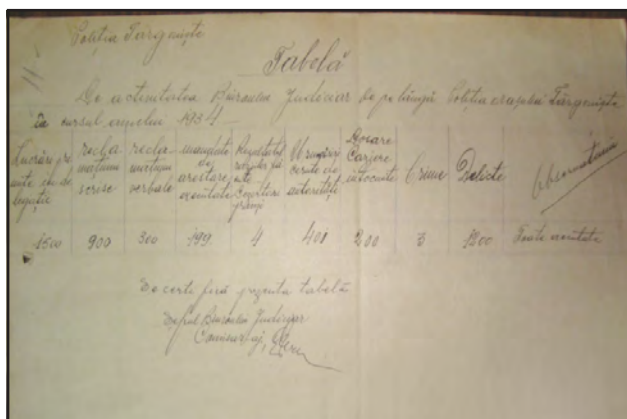 Poliția Târgoviște
Tabelă
De activitatea Biroului Judiciar de pe lângă Poliția orașului Târgoviște
în cursul anului 1934
reclamațiuni scrise
reclamațiuni verbale
mandate de arestare executate
Urmăriri cerute de autorități
Dosare Caziere întocmite
Crime
Delicte
Observațiuni
1500 900 300 199 4 401 200 3 1200 Toate executate
prezenta tabelă
Șeful Biroului Judiciar
Comisar aj.